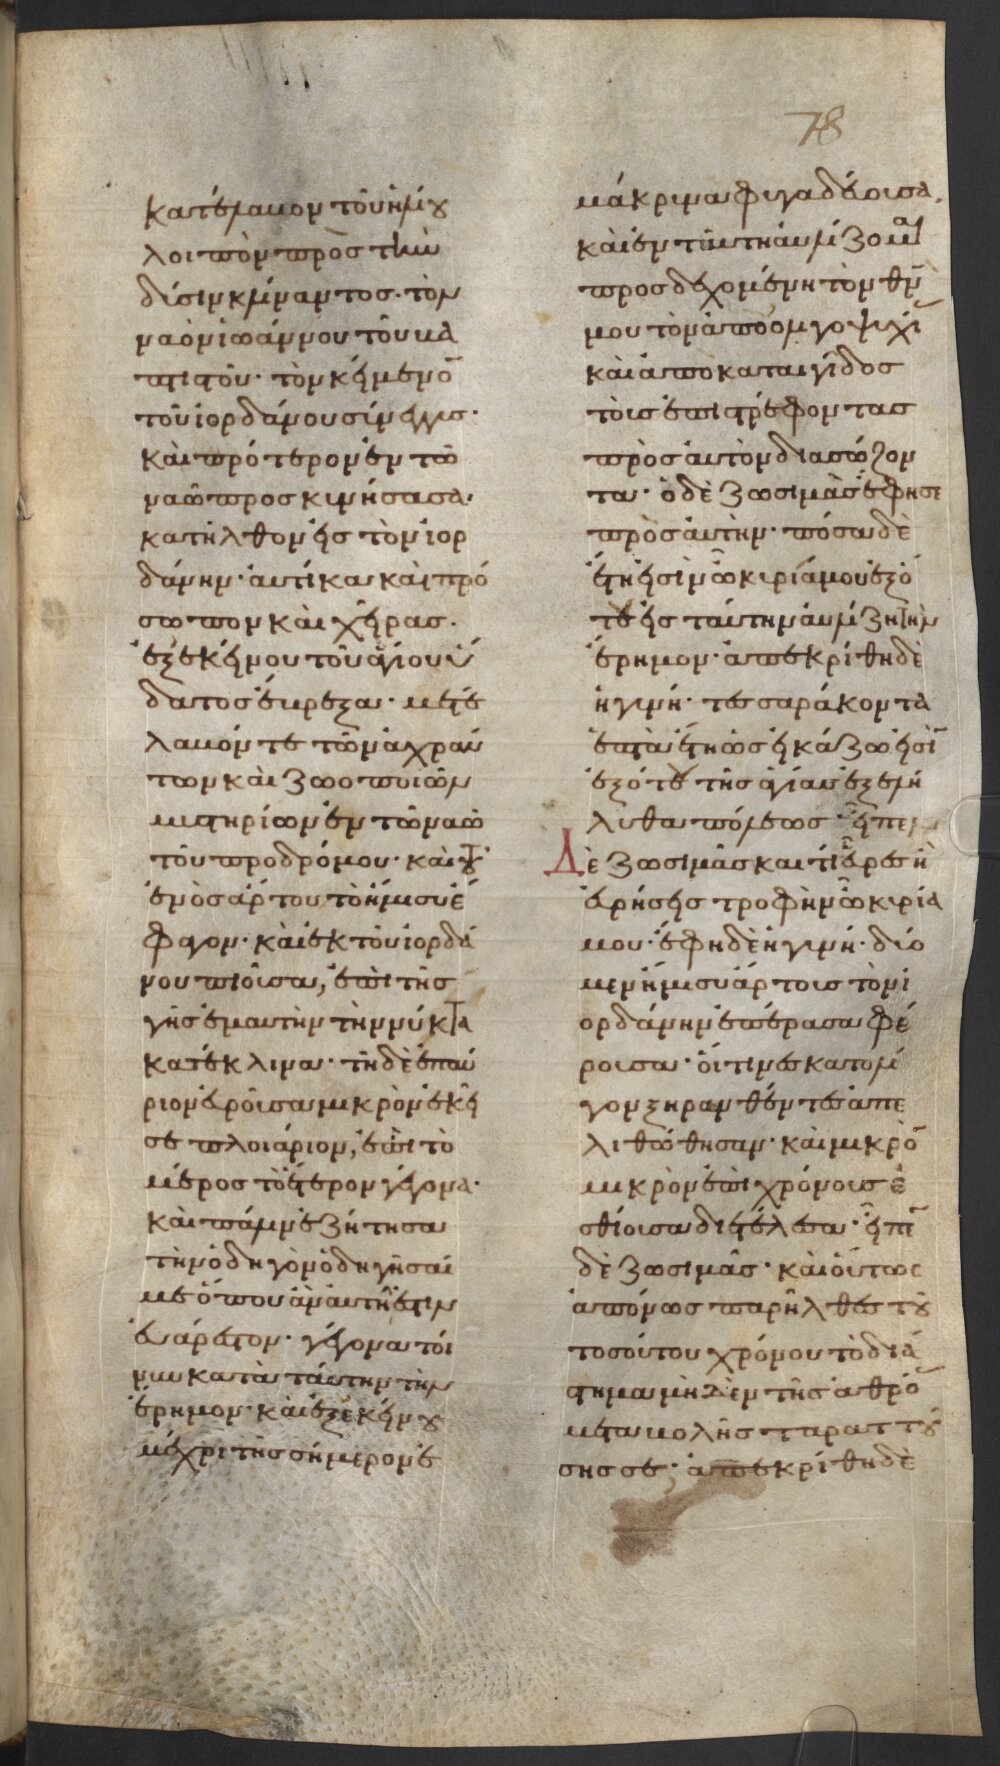 κατέλαβον τοῦ ἡλίου
λοιπὸν πρὸς τὴν
δύσιν κλίναντος· τὸν
ναὸν ἰωάννου τοῦ βα
πτιστοῦ· τὸν κείμενο̅
τοῦ ἰορδάνου σίνεγγις·
καὶ πρότερον ἐν τῶ
ναῶ προσκινήσασα·
κατῆλθον εἰς τὸν ἰορ
δάνην· αὐτίκα καὶ πρό
σωπον καὶ χεῖρας·
ἐξ ἐκείνου τοῦ ἁγίου ὕ
δατος ἔβρεξα· μετέ
λαβόν τε τῶν ἀχράν
των καὶ ζωοποιῶν
μιστηρίων ἐν τῶ ναῶ
τοῦ προδρόμου· καὶ τοῦ
ἑνὸς ἄρτου τὸ ἥμισυ ἔ
φαγον· καὶ ἐκ τοῦ ἰορδά
νου πιοῦσα, ἐπὶ τῆς
γῆς ἐμαυτὴν τὴν νύκτα
κατέκλινα· τῆ δὲ ἐπαύ
ριον εὑροῦσα μικρὸν ἐκεῖ
σε πλοιάριον, ἐπὶ τὸ
μέρος τὸ ἕτερον γέγονα·
καὶ πάλιν ἐζήτησα
τὴν ὁδηγὸν ὁδηγῆσαί
με ὅπου ἂν αὐτῆ ἐστιν
εὐάρεστον· γέγονα τοί
νυν κατὰ ταύτην τὴν
ἔρημον· καὶ ἐξ ἐκείνου
μέχρι τῆς σήμερον ἐ
μάκρινα φιγαδεύουσα.
καὶ ἐν τῆ αὐτῆ αὐλίζομαι
προσδεχομένη τὸν θν̅
μου τὸν ἀπὸ ὀλιγοψιχί
καὶ ἀπὸ καταιγίδος
τοὺς ἐπιστρέφοντας
πρὸς αὐτὸν διασώζον
τα· ὁ δὲ ζωσιμᾶς ἔφησε
πρὸς αὐτὴν· πόσα δὲ
ἔτη εἰσὶν ὦ κιρία μου ἐξό
τε εἰς ταύτην αὐλίζη τὴν
ἔρημον· ἀπεκρίθη δὲ
ἡ γινή· τεσσαράκοντα
ἑπτὰ ἔτη ὡς εἰκάζω εἰσὶ
ἐξότε τῆς ἁγίας ἐξελή
λυθα πόλεως· εἶπεν
Δὲ ζωσιμᾶς καὶ τί εὗρες ἢ
εὑρήσεις τροφὴν ὦ κιρία
μου· ἔφη δὲ ἡ γινή· δύο
μὲν ἥμισυ ἄρτους τὸν ἰ
ορδάνην ἐπέρασα φέ
ρουσα· οἵτινες κατ' ὀλί
γον ξηρανθέντες ἀπε
λιθώθησαν· καὶ μικρὸ̅
μικρὸν ἐπὶ χρόνους ἐ
σθίουσα διετέλεσα· εἶπε
δὲ ζωσιμᾶς· καὶ οὕτως
ἀπόνως παρῆλθες τοῦ
τοσούτου χρόνου τὸ διά
στημα μηδὲν τῆς ἀθρό
μεταβολῆς ταραττού
σης σε· ἀπεκρίθη δὲ